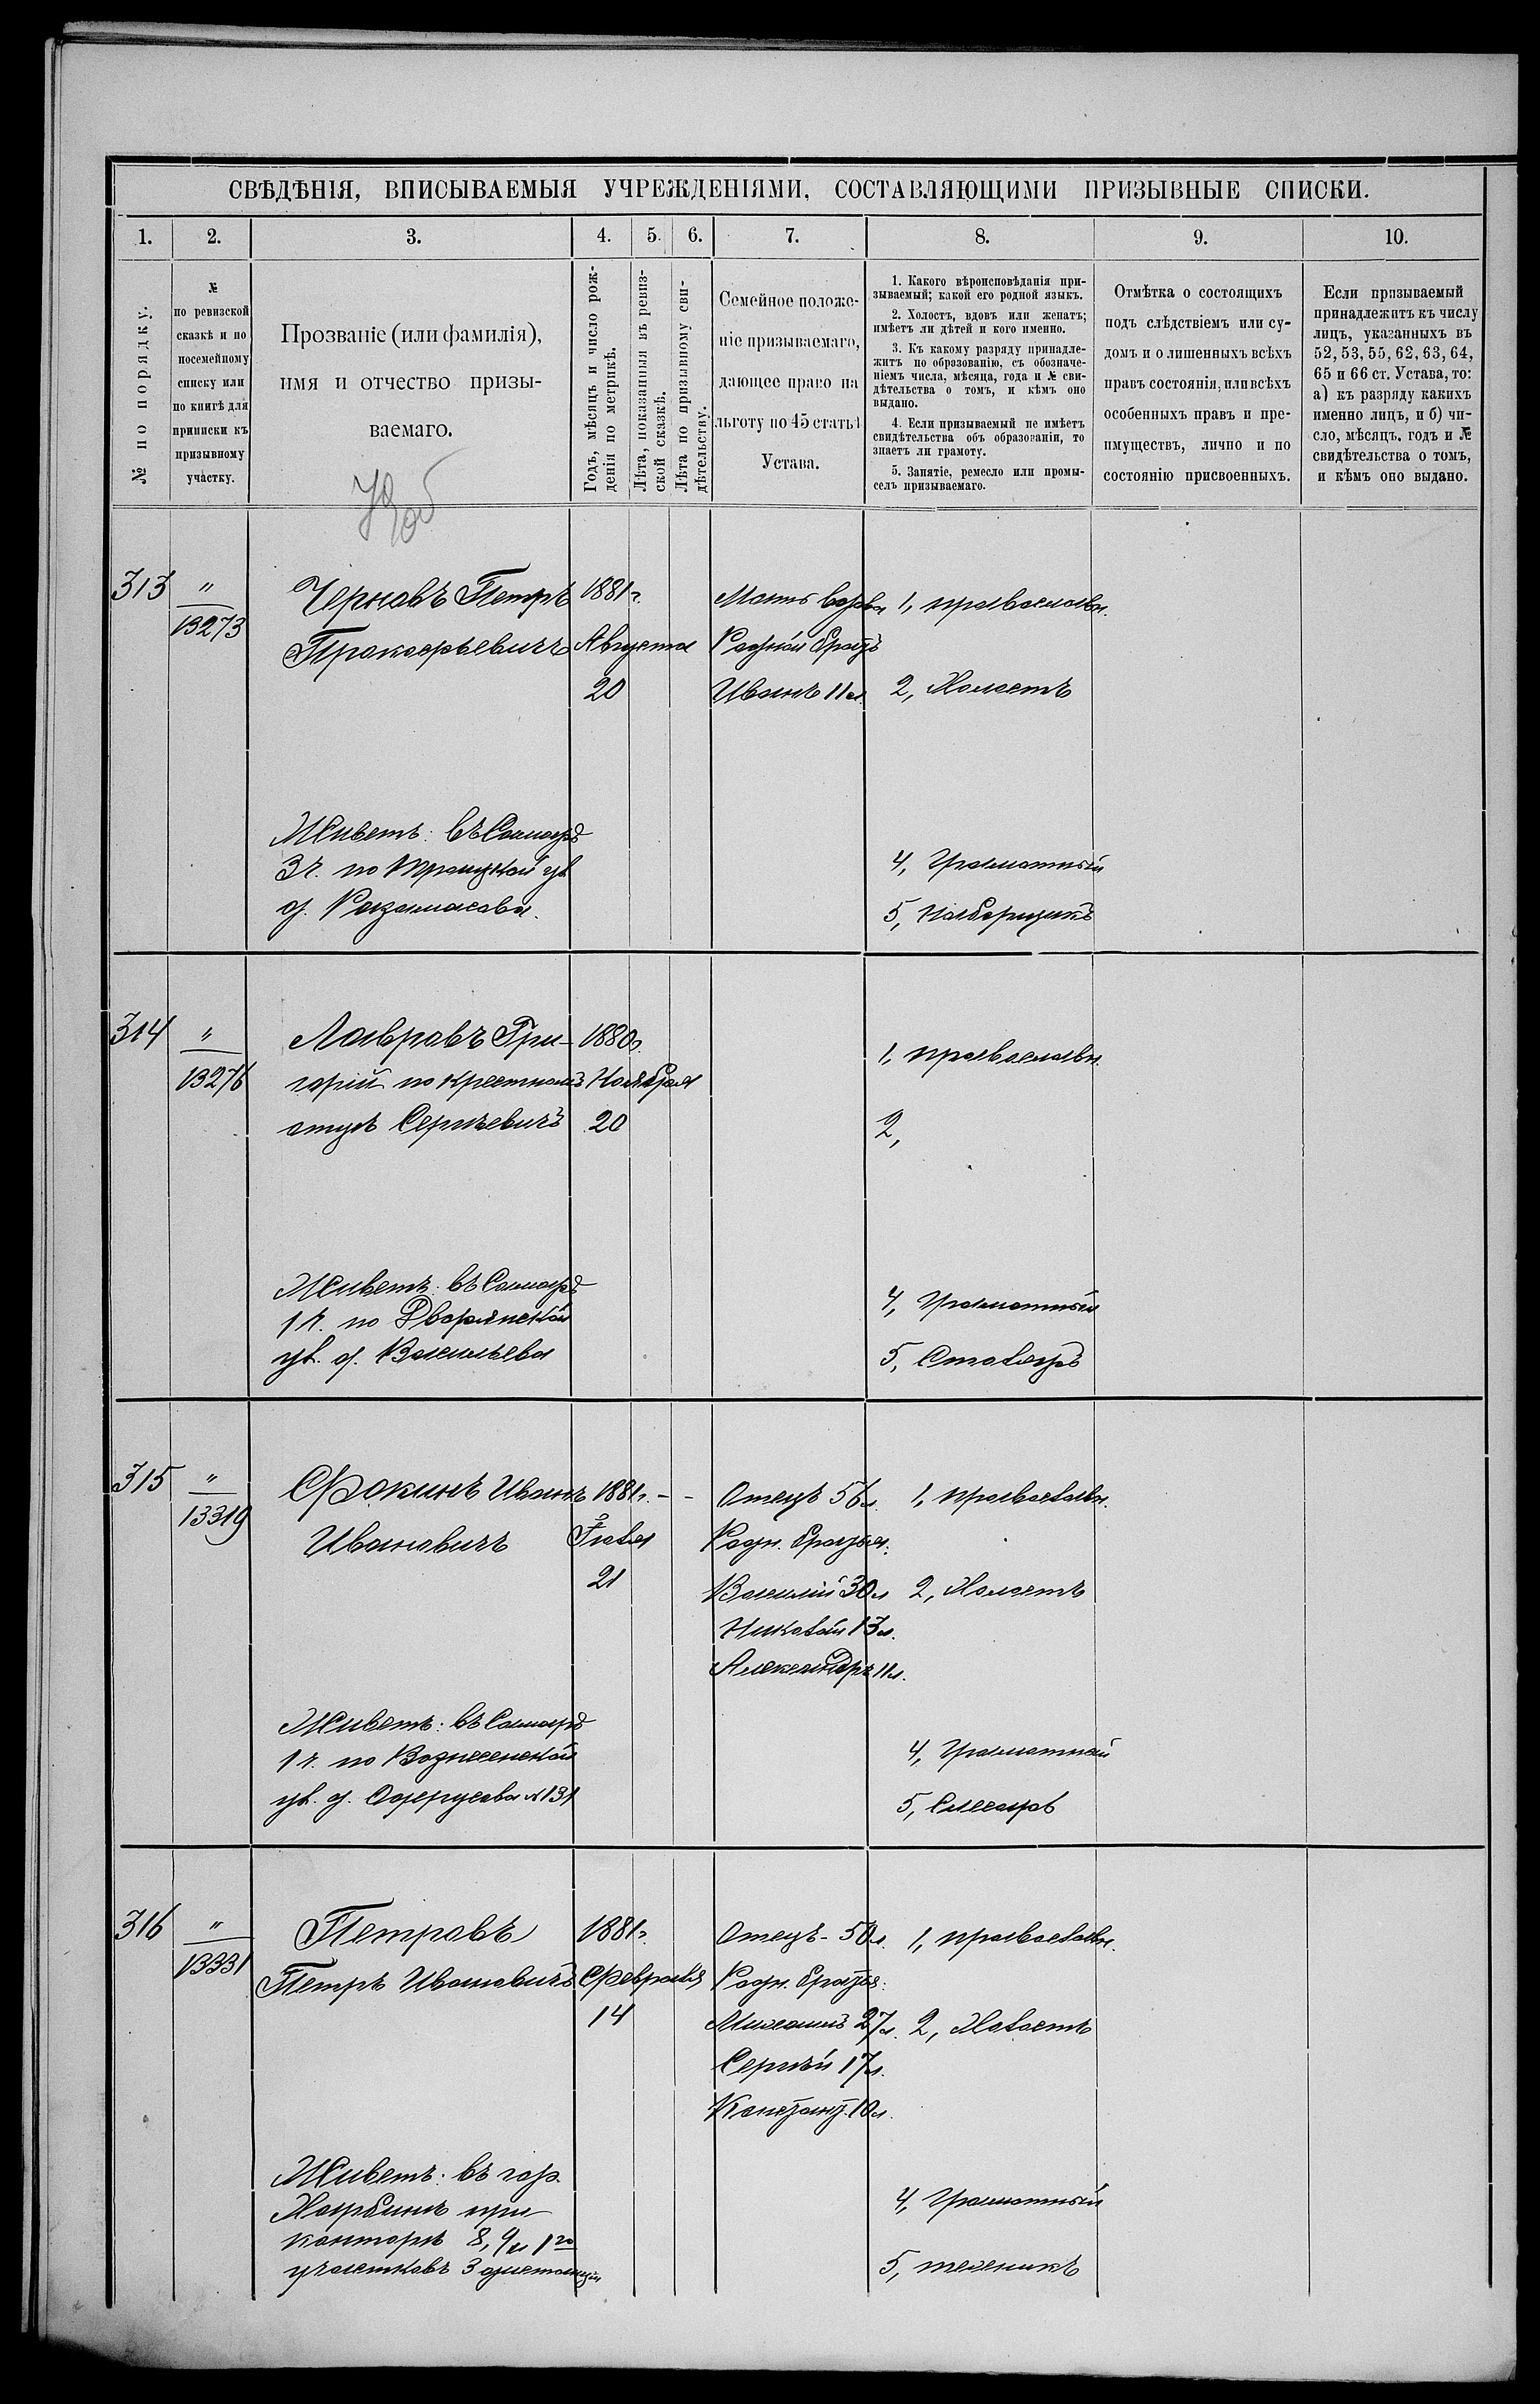 СВѢДѢНІЯ, ВПИСЫВАЕМЫЯ УЧРЕЖДЕНІЯМИ, СОСТАВЛЯЮЩИМИ ПРИЗЫВНЫЕ СПИСКИ.
1.
2.
3.
4.
5.
6.
7.
8.
9.
10.
№ по порядку.
№
по ревизской
сказкѣ и по
посемейному
списку или
по книгѣ для
приписки къ
призывному
участку.
Прозваніе (или фамилія),
имя и отчество призы-
ваемаго.
Годъ, мѣсяцъ и число рож-
денія по метрикѣ.
Лѣта, показанныя въ ревиз-
ской сказкѣ.
Лѣта по призывному сви-
дѣтельству.
Семейное положе-
ніе призываемаго,
дающее право на
льготу по 45 статьѣ
Устава.
1. Какого вѣроисповѣданія при-
зываемый; какой его родной языкъ.
2. Холостъ, вдовъ или женатъ;
имѣетъ ли дѣтей и кого именно.
3. Къ какому разряду принадле-
житъ по образованію, съ обозначе-
ніемъ числа, мѣсяца, года и № сви-
дѣтельства о томъ, и кѣмъ оно
выдано.
4. Если призываемый не имѣетъ
свидѣтельства объ образованіи, то
знаетъ ли грамоту.
5. Занятіе, ремесло или промы-
селъ призываемаго.
Отмѣтка о состоящихъ
подъ слѣдствіемъ или су-
домъ и о лишенныхъ всѣхъ
правъ состоянія, или всѣхъ
особенныхъ правъ и пре-
имуществъ, лично и по
состоянію присвоенныхъ.
Если призываемый
принадлежитъ къ числу
лицъ, указанныхъ въ
52, 53, 55, 62, 63, 64,
65 и 66 ст. Устава, то:
а) къ разряду какихъ
именно лицъ, и б) чи-
сло, мѣсяцъ, годъ и №
свидѣтельства о томъ,
и кѣмъ оно выдано.
313
"
13273
Черновъ Петръ
Прокофьевичъ
1881г.
Августа
20
Мать вдова
Родной братъ
Иванъ 11л.
1, православн.
2, Холостъ
Живетъ: въ Самарѣ
3 ч. по Троицкой ул
д.
4, Грамотный
5, Наборщикъ
314
"
13276
Лавровъ Гри-
горій по крестному
отцу Сергѣевичъ
1880г.
Ноября
20
1, православн.
2,
Живетъ: въ Самарѣ
1 ч. по Дворянской
ул. д. Васильева
4, Грамотный
5, Столяръ
315
"
13319
Фокинъ Иванъ
Ивановичъ
1881г. - -
Іюля
21
Отецъ 56л.
Родн. братья:
Василій 30л
Николай 13л.
Александръ 11л.
1, православн.
2, Холостъ
Живетъ: въ Самарѣ
1 ч. по Вознесенской
ул. д. № 131
4, Грамотный
5, Слесарь
316
"
13331
Петровъ
Петръ Ивановичъ
1881г.
Февраля
14
Отецъ - 50л.
Родн. братья:
Михаилъ 27л.
Сергѣй 17л.
Констант. 10л.
1, православн.
2, Холостъ
Живетъ: въ гор.
Харбинъ при
конторѣ 8, 9 и 1го
участковъ 3 дистанціи
4, Грамотный
5, техникъ